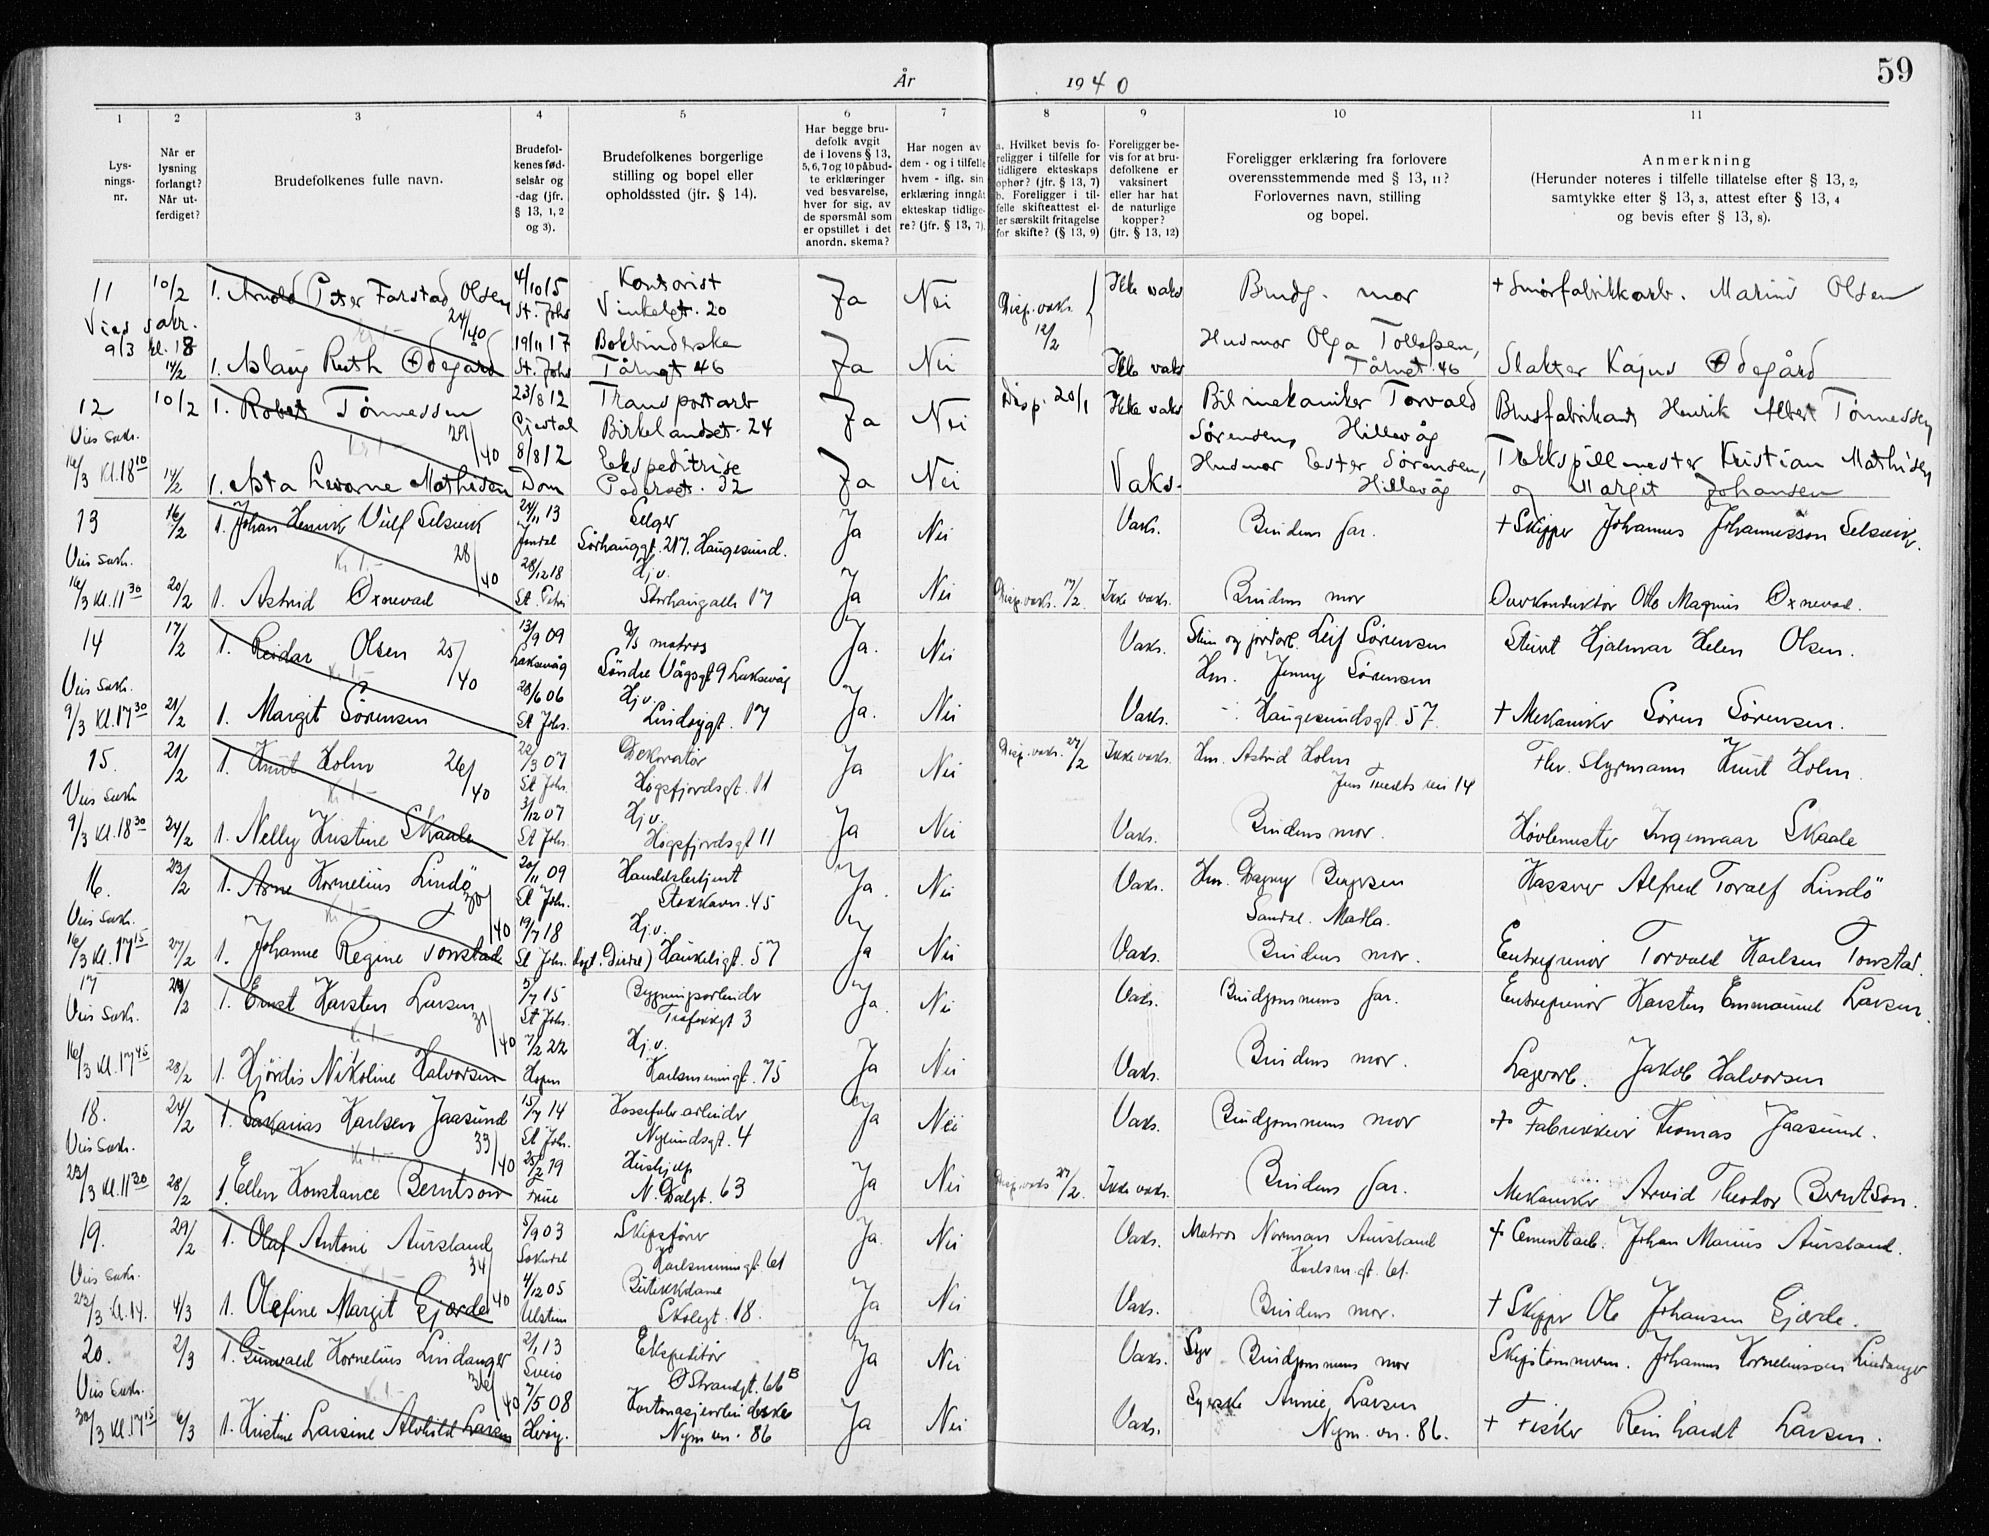 År 1940
59
1 2 3 4 5 6 7 8 9 10 11
Lysnings-nr.
Når er lysning forlangt? Når utferdiget?
Brudefolkenes fulle navn.
Brudefolkenes fødselsår og -dag (jfr. § 13, 1, 2 og 3).
Brudefolkenes borgerlige stilling og bopel eller opholdssted (jfr. § 14).
Har begge brudefolk avgit de i lovens § 13, 5, 6, 7 og 10 påbudte erklæringer ved besvarelse, hver for sig, av de spørsmål som er opstillet i det anordn. skema?
Har nogen av dem - og i tilfelle hvem - iflg. sin erklæring inngåt ekteskap tidligere? (jfr. § 13, 7).
a. Hvilket bevis foreligger i tilfelle for tidligere ekteskaps ophør? (jfr. § 13, 7) b. Foreligger i tilfelle skifteattest eller særskilt fritagelse for skifte? (§ 13, 9)
Foreligger bevis for at brudefolkene er vaksinert eller har hat de naturlige kopper? (jfr. § 13, 12)
Foreligger erklæring fra forlovere overensstemmende med § 13, 11? Forlovernes navn, stilling og bopel.
Anmerkning (Herunder noteres i tilfelle tillatelse efter § 13, 2, samtykke efter § 13, 3, attest efter § 13, 4 og bevis efter § 13, 8).
11 10/2 1. Arnold Peter Farstad Olsen 4/10 15 Kontorist Ja Nei Ikke vaks Brudg. mor + Smørfabrikkarb. Marius Olsen
Vies sakr. 24/40 St. Johs Vinkelgt. 20 Disp. vaks. 12/2
9/3 kl. 18 19/11 17 Bokbinderske Husmor Olga Tollefsen,
14/2 1. Aslaug Ruth Ødegård St. Johs Tårngt 46 Ja Nei Ikke vaks Tårngt. 46 Slakter Kajus Ødegård
12 10/2 1. Robert Tønnessen 23/8 12 Transportarb Ja Nei Disp. 20/1 Ikke vaks Bilmekaniker Torvald Brusfabrikant Henrik Albert Tønnessen
Vies Sakr. 29/40 Gjestal Birkelandsgt. 24 Sørensen, Hillevåg
16/3 Kl. 18 10 8/8 12 Ekspeditrise Husmor Ester Sørensen, Trekkspillmester Kristian Mathisen
14/2 1. Asta Levorne Mathisen Dom Pedersgt. 32 Ja Nei Vaks. Hillevåg og Margit Johansen
13 16/2 1. Johan Henrik Ulf Selsvik 24/11 13 Selger Ja Nei Vaks. Brudens far. + Skipper Johannes Johannesson Selsvik.
Vies Sakr. 28/40 Sørhauggt. 217. Haugesund.
16/3 Kl. 11 30 20/2 1. Astrid Øxnevad 28/12 18 St. Petri Hj.v. Storhaugalle 17 Ja Nei Disp. vaks. 17/2 Ikke vaks. Brudens mor Overkonduktør Otto Magnus Øxnevad.
14 17/2 1. Reidar Olsen 25/40 13/9 09 Laksevåg matros Søndre Vågsgt 9 Laksevåg Ja. Nei Vaks. Sten og jordarb. Leif Sørensen Stuert Hjalmar Helen Olsen.
Vies Sakr. Hm. Jenny Sørensen
9/3 Kl. 17 30 21/2 1. Margit Sørensen 28/6 06 St Johs. Hj.v. Lindøygt. 17 Ja. Nei Vaks. Haugesundsgt. 57. + Mekaniker Søren Sørensen.
15. 21/2 1. Knut Holm 26/40 22/3 07 St Johs. Dekoratør Høgsfjordsgt. 11 Ja Nei Disp. vaks. 27/2 Ikke vaks. Hm. Astrid Holm Flev. Styrmann Knut Holm.
Vies Sakr. Jens Tvedts vei 14
9/3 Kl. 18 30 24/2 1. Nelly Kristine Skaale 3/12 07 St Johs. Hj.v. Høgsfjordsgt 11 Ja Nei Vaks. Brudens mor. Høvlemester Ingemaar Skaale
16. 23/2 1. Arne Kornelius Lindö 30/40 20/11 09 St Johs. Handelsbetjent Stokkavn. 45 Ja. Nei Vaks. Hm. Dagny Bergsen Kasserer Alfred Toralf Lindö
Vies Sakr. Sandal. Madla.
16/3 Kl. 17 15 27/2 1. Johanne Regine Tonstad 19/7 18 St Johs. Hj.v. Haukeligt. 57 Ja Nei Vaks. Brudens mor. Entreprenør Torvald Karlsen Tonstad.
17 1. Ernst Karsten Larsen 31/40 5/7 15 St Johs. Bygningsarbeider 3 Ja. Nei Vaks. Brudgommens far. Entreprenør Karsten Emmanuel Larsen.
Vies Sakr.
16/3 Kl. 17 45 28/2 1. Hjørdis Nikoline Halvorsen 7/2 22 Hj.v. Karlsminnegt. 75 Ja Nei Vaks. Brudens mor. Lagerarb. Jakob Halvorsen
18. 24/2 1. Sakarias Karlsen Jaasund 33/40 15/7 14 St Johs. Kassefabr. arbeider Nylundsgt. 4 Ja Nei Vaks. Brudgommens mor + Fabrikkeier Thomas Jaasund.
Vies Sakr.
23/3 Kl. 11 30 28/2 1. Ellen Konstance Berntson 25/2 19 Frue Hushjelp N. Dalgt. 63 Ja Nei Disp. vaks 27/2 Ikke vaks. Brudens far. Mekaniker Arvid Theodor Berntson.
19. 29/2 1. Olaf Antoni Aursland 34/40 5/9 03 Skipsfører Karlsminnegt. 61 Ja. Nei Vaks. Matros Norman Aursland + Cementarb. Johan Marius Aursland.
Vies Sakr. Karlsm.gt. 61.
23/3 Kl. 14. 4/3 1. Olefine Margit Gjerde 4/12 05 Ulstein Butikkdame Skolegt. 18. Ja Nei Vaks. Brudens mor. + Skipper Ole Johansen Gjerde.
20. 2/3 1. Gunvald Kornelius Lindanger 36/40 2/1 13 Sveio Ekspeditør Ø Strandgt. 66 B Ja Nei Vaks. Brudgommens mor Skipstømmerm. Johannes Korneliussen Lindanger
Vies Sakr.
30/3 Kl. 17 15 6/3 1. Kristine Larsine Alvhild Larsen 7/5 08 Kartonasjearbeiderske Nym vn. 86 Ja Nei Vaks. Syerske Annie Larsen Nym. vn. 86. + Fisker Reinhardt Larsen.